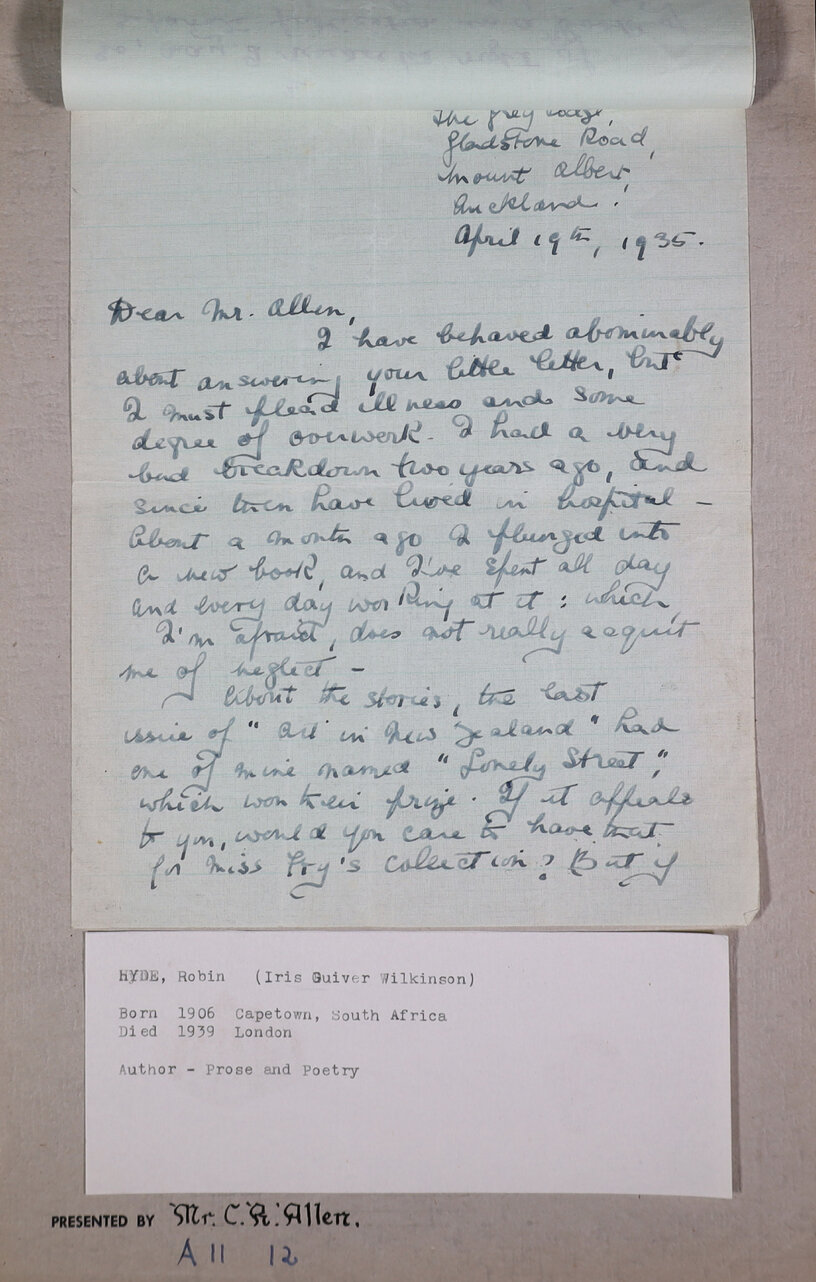 The Grey Lodge,
Gladstone Road,
Mount Albert,
Auckland.
April 19th, 1935.
Dear Mr. Allen,
I have behaved abominably
about answering your little letter, but
I must plead illness and some
degree of overwork. I had a very
bad breakdown two years ago, and
since then have lived in hospital –
About a month ago I plunged into
a new book, and I've spent all day
and every day working at it: which,
I'm afraid, does not really acquit
me of neglect –
About the stories, the last
issue of "Art in New Zealand" had
one of mine named "Lonely Street",
which won their prize. If it appeals
to you, would you care to have that
for Miss Fry's collection? But if
HYDE, Robin (Iris Guiver Wilkinson)
Born 1906 Capetown, South Africa
Died 1939 London
Author - Prose and Poetry
PRESENTED BY Mr. C. R. Allen.
A11 12